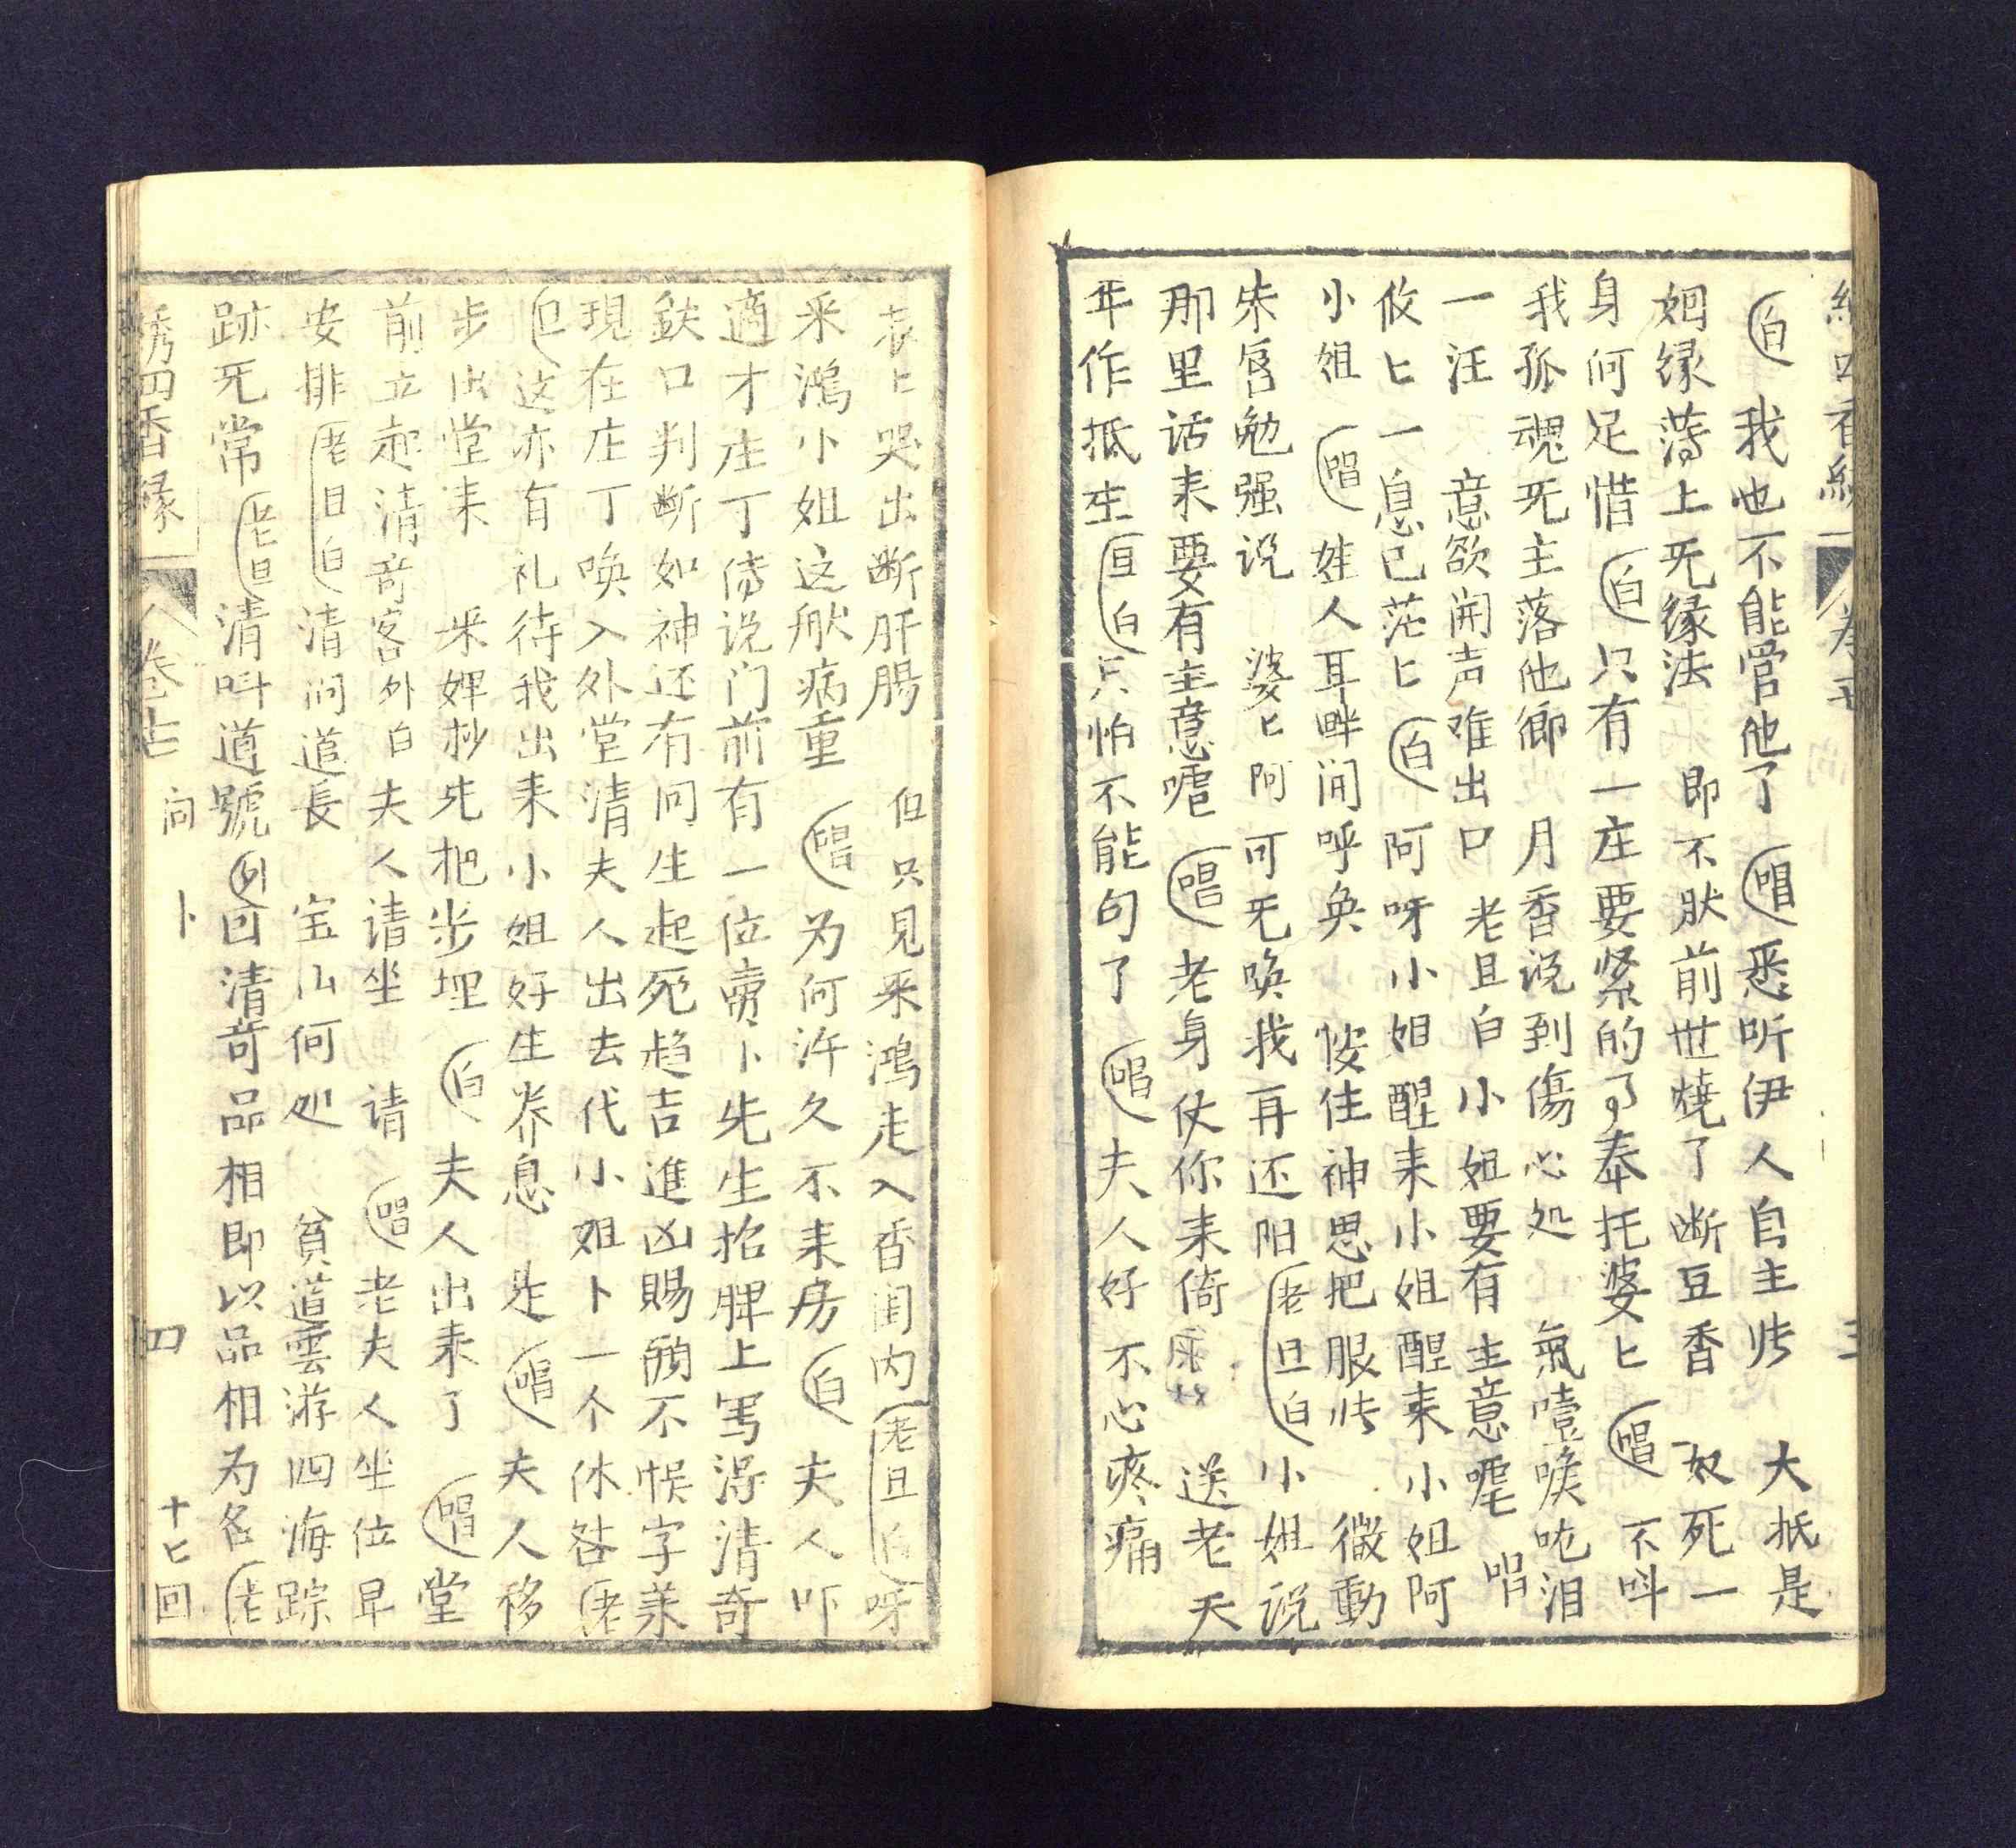 四香緣 卷 三
白 我也不能管他了 唱 悉听伊人自主张 大抵是
姻缘薄上旡缘法 即不肰前世燒了断豆香 奴死一
身何足惜 白 只有一庄要紧的了奉托婆匕 唱 不呌
我孤魂旡主落他鄉 月香说到傷心处 氣噎喉吰泪
一汪 意欲開声难出口 老旦白 小姐要有主意嘘 唱
攸匕一息已茫匕 白 阿呀小姐醒来小姐醒来小姐阿
小姐 唱 娃人耳畔间呼奂 悛住神思把服张 微動
朱唇勉强说 婆匕阿可旡唤我再还阳 老旦白 小姐说
那里话来要有主意嘘 唱 老身仗你来倚 送老天
年作抵生 旦白 只怕不能句了 唱 夫人好不心疼痛
哀匕哭出断肝腸 但只见采鴻走入香闺内 老旦白 呀
采鴻小姐这般病重 唱 为何许久不来房 白 夫人吓
適才庄丁傳说门前有一位賣卜先生招牌上写得清奇
鉄口判断如神还有问生起死趋吉進凶賜顧不悮字羕
現在庄丁唤入外堂清夫人出去代小姐卜一个休咎 老
旦 这亦有礼待我出来小姐好生养息 是 唱 夫人移
步出堂来 采婢抄先把步埋 白 夫人出来了 唱 堂
前立起清奇客外白夫人请坐 请 唱 老夫人坐位早
安排 老旦白 清问道長 宝山何处 貧道雲游四海踪
跡旡常 老旦 清呌道號 外 回清奇品相即以品相为名 老
绣四香緣 卷七 问卜 四 十七回